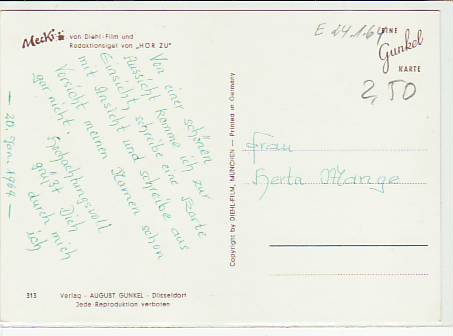 Mecki von Diehl-Film und
Redaktionsigel von „HÖR ZU"
E 24.1.64
EINE
Gunkel
KARTE
2,50
Von einer schönen
Aussicht komme ich zur
Einsicht, schreibe eine Karte
mit Ansicht und schreibe aus
Vorsicht meinen Namen schon
gar nicht.
Hochachtungsvoll
grüßt Dich
durch mich
ich
— 20. Jan. 1964 —
Frau
Herta Mange
Copyright by DIEHL-FILM, MÜNCHEN — Printed in Germany
313 Verlag - AUGUST GUNKEL - Düsseldorf
Jede Reproduktion verboten